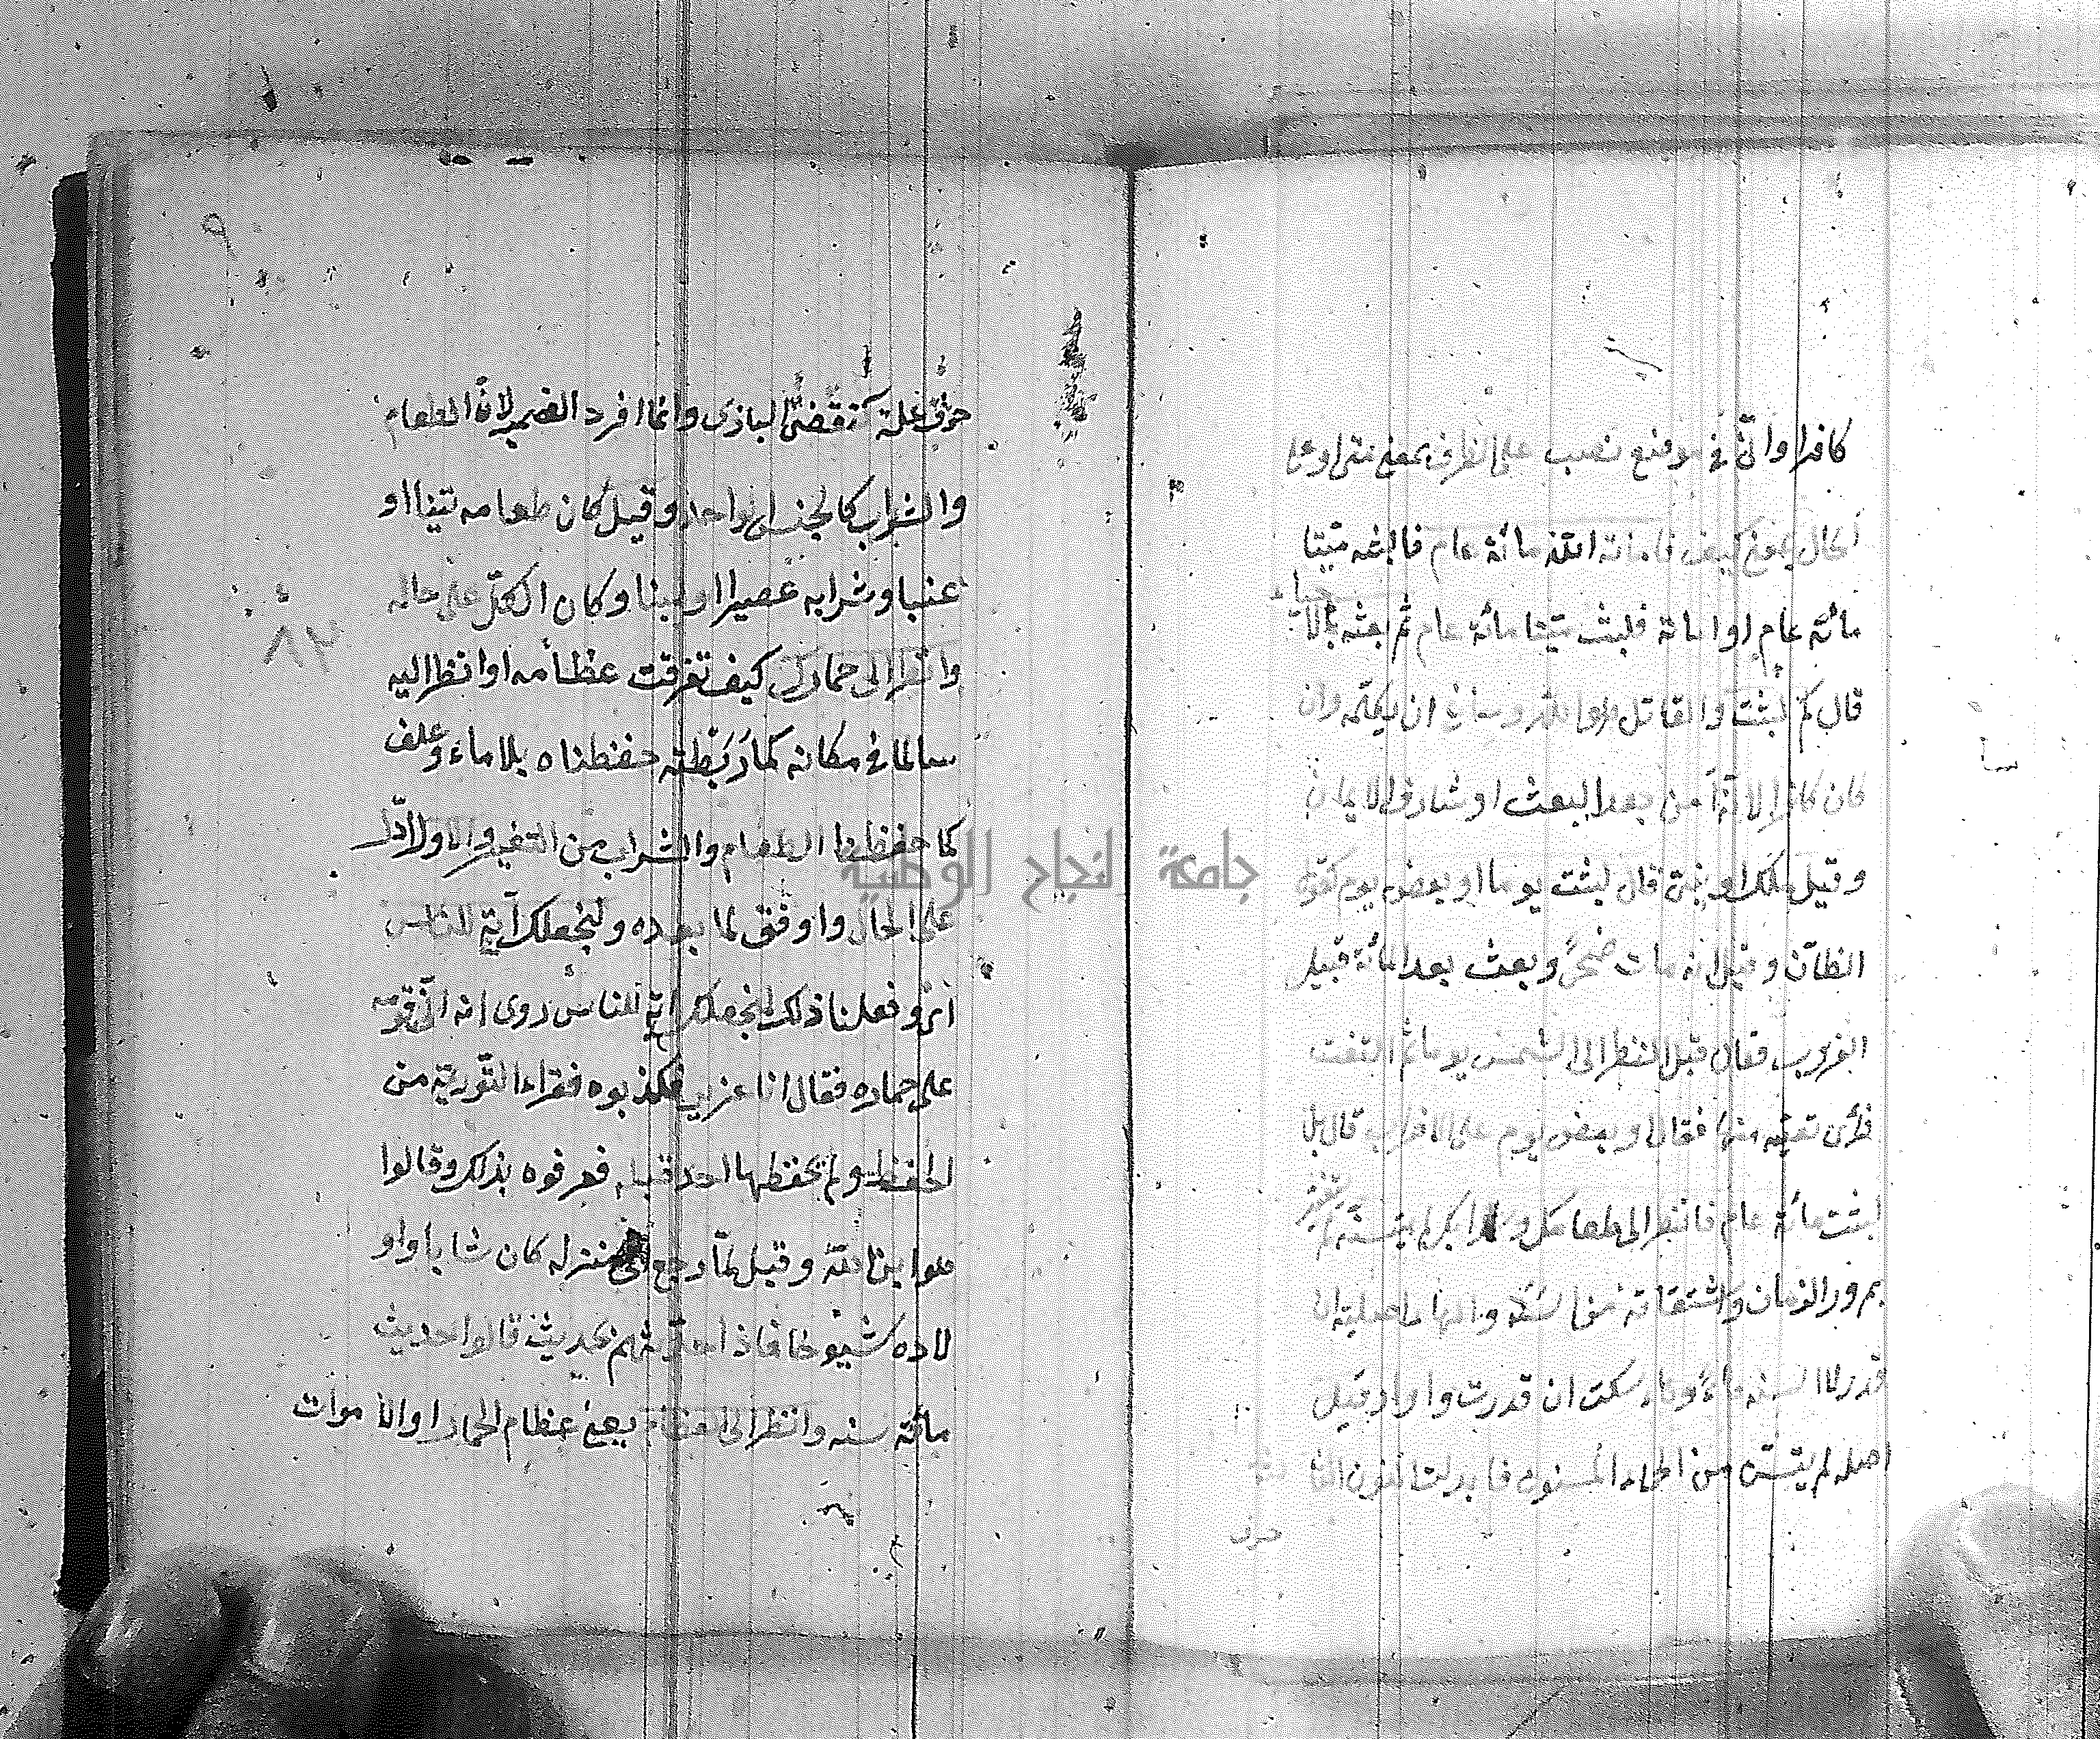 كافرا وانى فى موضع نصب على الظرف بمعنى متى او على
الحال بمعنى كيف فاماته الله مائة عام فالبثه ميتا
مائة عام او اماته فلبث ميتا مائة عام ثم بعثه بالاحياء
قال كم لبثت والقائل هو الله وساغ ان يكلمه وان
كان كافرا لانه آمن بعد البعث او شارف الايمان
وقيل ملك او نبى قال لبثت يوما او بعض يوم كقول
الظان وقيل انه مات ضحى وبعث بعد المائة قبيل
الغروب فقال قبل النظر الى الشمس يوما ثم التفت
فرأى بقية منها فقال او بعض يوم على الاضراب قال بل
لبثت مائة عام فانظر الى طعامك وشرابك لم يتسنه لم يتغير
بمرور الزمان واشتقاقه من السنة والهاء اصلية ان
قدر لام السنة هاء وهاء سكت ان قدرت واوا وقيل
اصله لم يتسنن من الحماء المسنون فابدلت النون الثالثة
حرف
٩
٨٢
حرف علة كتقضى البازى وانما افرد الضمير لان الطعام
والشراب كالجنس الواحد وقيل كان طعامه تينا او
عنبا وشرابه عصيرا او لبنا وكان الكل على حاله
وانظر الى حمارك كيف تفرقت عظامه او انظر اليه
سالما فى مكانه كما ربطته حفظناه بلا ماء وعلف
كما حفظنا الطعام والشراب من التغير والاول ادل
على الحال واوفق لما بعده ولنجعلك آية للناس
اى وفعلنا ذلك لنجعلك آية للناس روى انه اتى قومه
على حماره فقال انا عزير فكذبوه فقراء التورية من
الحفظ ولم يحفظها احد قبله فعرفوه بذلك وقالوا
هو ابن الله وقيل لما رجع الى منزله كان شابا واو
لاده شيوخا فاذا حدثهم بحديث قالوا حديث
مائة سنه وانظر الى العظام يعنى عظام الحمار او الاموات
جامعة النجاح الوطنية